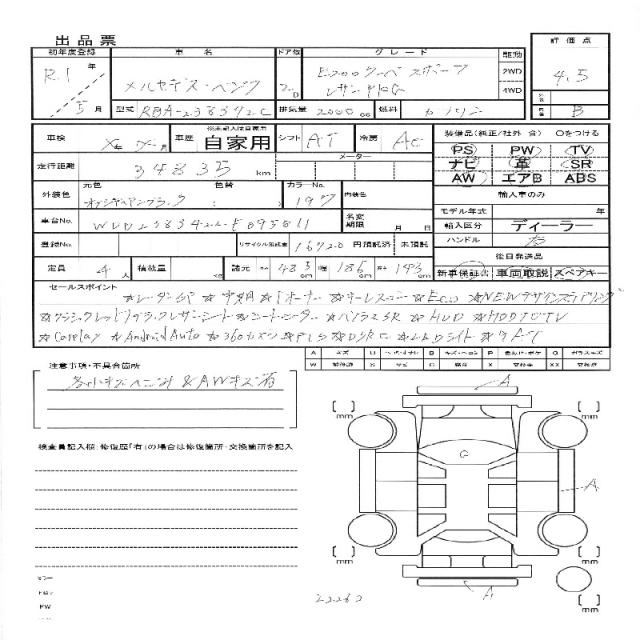 出品票
初年度登録 車名 ドア数 グレード 駆動 評価点
R.1 年 5 月
メルセデス・ベンツ 2 D
E200クーペ スポーツ
レザーPKG
2WD
4WD
4.5
B
型式 RBA-238342C 排気量 2000 cc 燃料 ガソリン
車検 年 月 車歴 自家用 シフト AT 冷房 AC
装備品(純正/社外 含) ○をつける
PS PW TV
ナビ 革 SR
AW エアB ABS
走行距離 34835 km メーター
外装色 元色 色替 カラーNo. 197 内装色
オブシディアンブラック
輸入車のみ
モデル年式 年
輸入区分 ディーラー
ハンドル 右
車台No. WDD2383422F095811 名変期限 月 日
登録No. リサイクル預託金 16720 円 預託済 未預託
後日発送品
新車保証書 車両取説 スペアキー
定員 4 人 積載量 kg 諸元 483 cm 幅 186 cm 高 143 cm
セールスポイント
☆レーダーSP ☆サ期 ☆1オーナー ☆キーレスゴー ☆Eco ☆NEWデザインステアリング
☆クラシックレッド/ブラックレザーシート ☆シートヒーター ☆パノラマSR ☆HUD ☆HDDナビTV
☆Carplay ☆AndroidAuto ☆360°カメラ ☆PTS ☆DSRC ☆LEDライト ☆9AT
注意事項・不具合箇所
各小キズヘコミ & AWキズ有
検査員記入欄:修復歴「有」の場合は修復箇所・交換箇所を記入
A
G
A
A
mm
mm
mm
mm
mm
22262